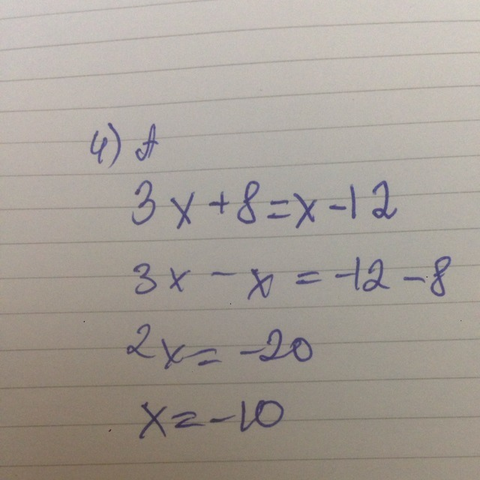 4) A
3x+8=x-12
3x-x=-12-8
2x=-20
x=-10